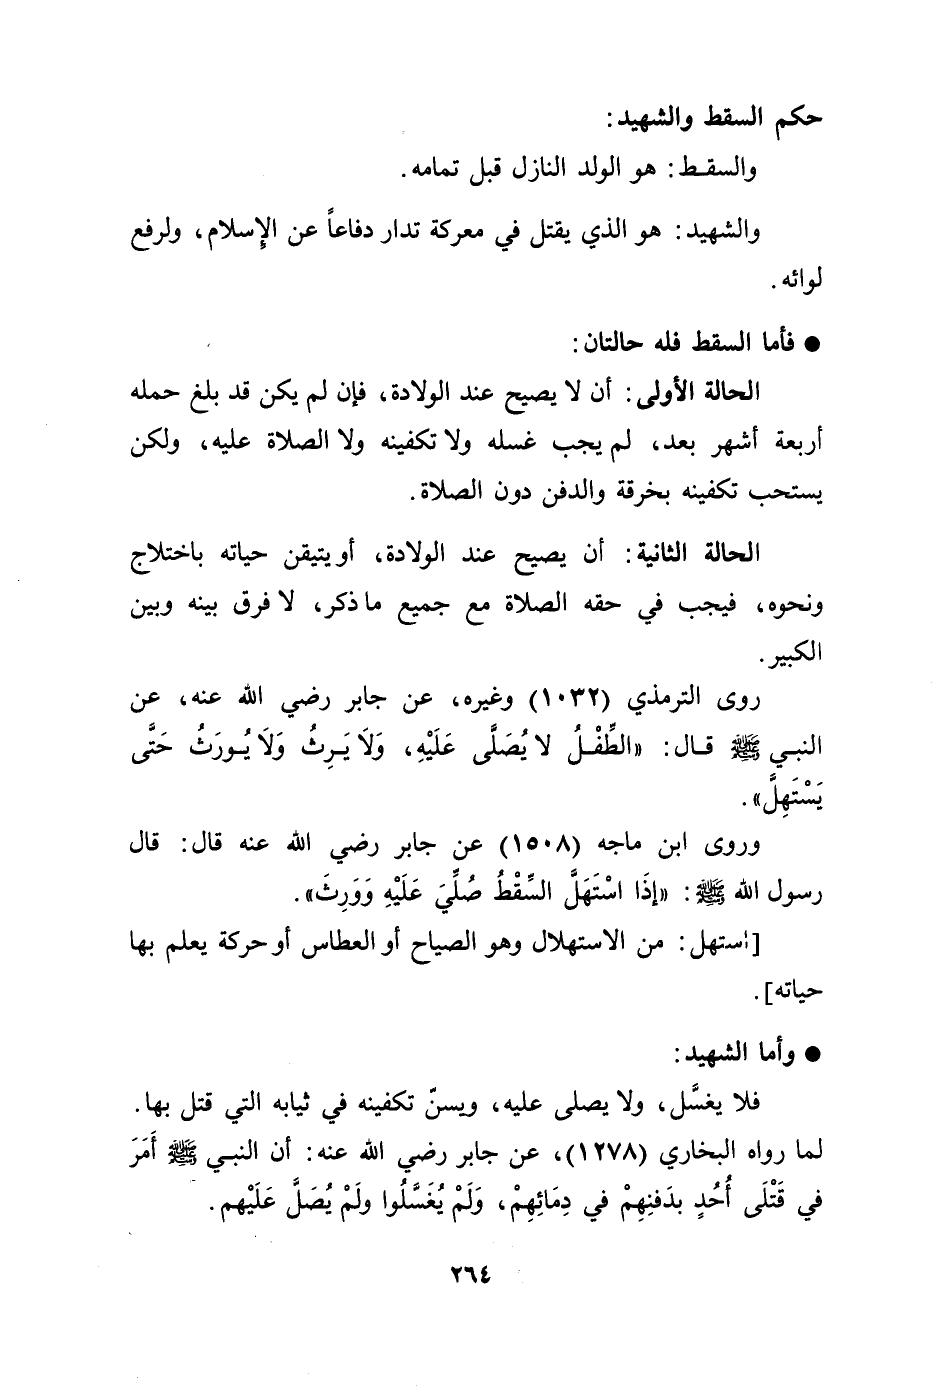 حكم السقط والشهيد:
والسقـط: هو الولد النازل قبل تمامه.
والشهيد: هو الذي يقتل في معركة تدار دفاعاً عن الإسلام، ولرفع
لوائه.
● فأما السقط فله حالتان:
الحالة الأولى: أن لا يصيح عند الولادة، فإن لم يكن قد بلغ حمله
أربعة أشهر بعد، لم يجب غسله ولا تكفينه ولا الصلاة عليه، ولكن
يستحب تكفينه بخرقة والدفن دون الصلاة.
الحالة الثانية: أن يصيح عند الولادة، أو يتيقن حياته باختلاج
ونحوه، فيجب في حقه الصلاة مع جميع ما ذكر، لا فرق بينه وبين
الكبير.
روى الترمذي (١٠٣٢) وغيره، عن جابر رضي الله عنه، عن
النبـي ﷺ قـال: «الطِّفْـلُ لا يُصَلَّى عَلَيْهِ، وَلَا يَـرِثُ وَلَا يُـورَثُ حَتَّى
يَسْتَهِلَّ».
وروى ابن ماجه (١٥٠٨) عن جابر رضي الله عنه قال: قال
رسول الله ﷺ: «إِذَا اسْتَهَلَّ السِّقْطُ صُلِّيَ عَلَيْهِ وَوَرِثَ».
[استهل: من الاستهلال وهو الصياح أو العطاس أو حركة يعلم بها
حياته].
● وأما الشهيد:
فلا يغسَّل، ولا يصلى عليه، ويسنّ تكفينه في ثيابه التي قتل بها.
لما رواه البخاري (١٢٧٨)، عن جابر رضي الله عنه: أن النبـي ﷺ أَمَرَ
في قَتْلَى أُحُدٍ بِدَفنِهِمْ في دِمَائِهِمْ، وَلَمْ يُغَسَّلُوا ولَمْ يُصَلَّ عَلَيْهم.
٢٦٤